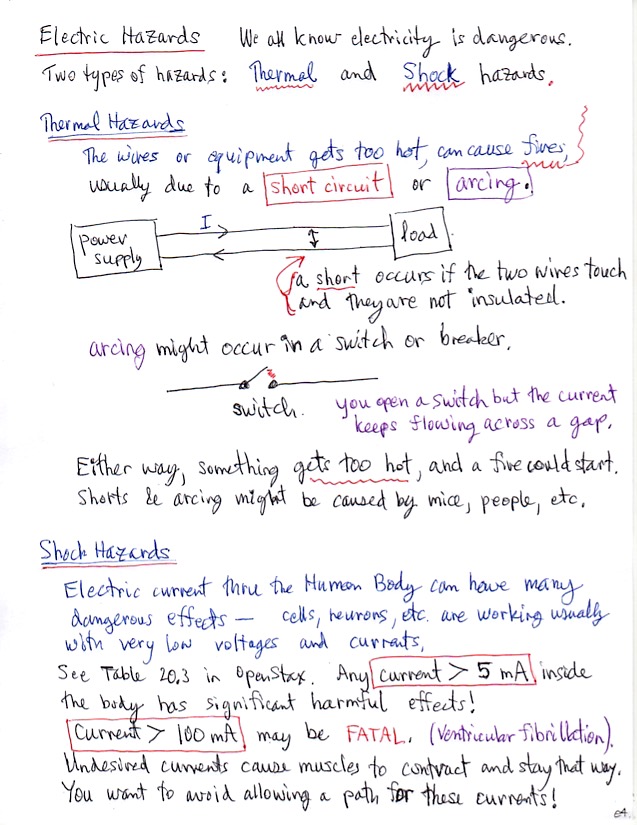 Electric Hazards We all know electricity is dangerous.
Two types of hazards: Thermal and Shock hazards.
Thermal Hazards
The wires or equipment gets too hot, can cause fires,
usually due to a short circuit or arcing.
I
power
supply
load
a short occurs if the two wires touch
and they are not insulated.
arcing might occur in a switch or breaker.
switch.
you open a switch but the current
keeps flowing across a gap.
Either way, something gets too hot, and a fire could start.
Shorts & arcing might be caused by mice, people, etc.
Shock Hazards
Electric current thru the Human Body can have many
dangerous effects — cells, neurons, etc. are working usually
with very low voltages and currents.
See Table 20.3 in OpenStax. Any current > 5 mA inside
the body has significant harmful effects!
Current > 100 mA may be FATAL. (Ventricular fibrillation).
Undesired currents cause muscles to contract and stay that way.
You want to avoid allowing a path for these currents!
64.